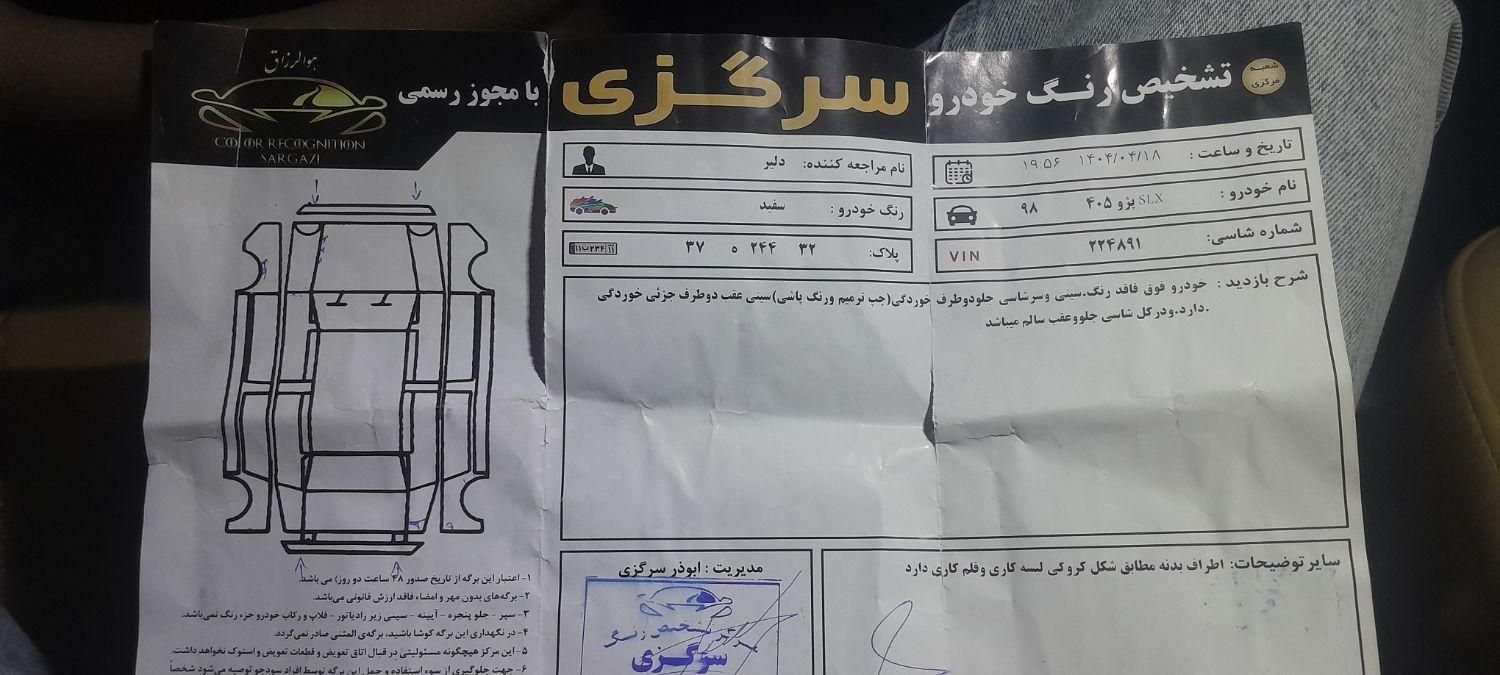 شعبه مرکزی
تشخیص رنگ خودرو
سرگزی
با مجوز رسمی
هوالرزاق
COLOR RECOGNITION
SARGAZI
تاریخ و ساعت : ۱۴۰۴/۰۴/۱۸ ۱۹:۵۶
نام مراجعه کننده: دلیر
نام خودرو : پژو ۴۰۵ SLX ۹۸
رنگ خودرو : سفید
شماره شاسی: ۲۲۴۸۹۱ VIN
پلاک: ۳۲ ۲۴۴ ه ۳۷
شرح بازدید : خودرو فوق فاقد رنگ.سینی وسرشاسی جلودوطرف خوردگی(چپ ترمیم ورنگ پاشی)سینی عقب دوطرف جزئی خوردگی
دارد.ودرکل شاسی جلووعقب سالم میباشد.
سایر توضیحات: اطراف بدنه مطابق شکل کروکی لیسه کاری وقلم کاری دارد
مدیریت : ابوذر سرگزی
تشخیص رنگ
سرگزی
۱- اعتبار این برگه از تاریخ صدور ۴۸ ساعت دو روز) می باشد.
۲- برگه‌های بدون مهر و امضاء فاقد ارزش قانونی می‌باشد.
۳- سپر - جلو پنجره - آیینه - سینی زیر رادیاتور - قلاب و رکاب خودرو جزء رنگ نمی‌باشد.
۴- در نگهداری این برگه کوشا باشید، برگه‌ی المثنی صادر نمی‌گردد.
۵- این مرکز هیچگونه مسئولیتی در قبال اتاق تعویض و قطعات تعویض و استوک نخواهد داشت.
۶- جهت جلوگیری از سوء استفاده و جعل این برگه توسط افراد سودجو توصیه می‌شود شخصاً